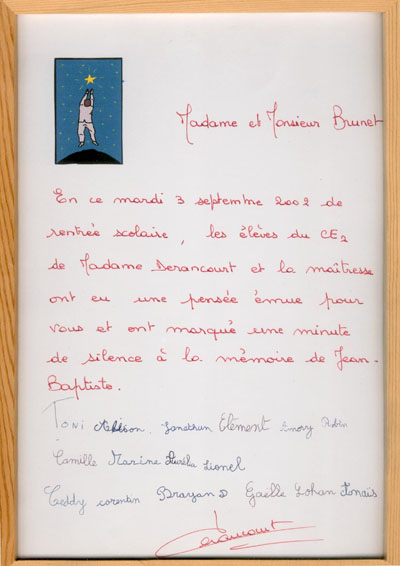 Madame et Monsieur Brunet
En ce mardi 3 septembre 2002 de
rentrée scolaire, les élèves du CE2
de Madame Derancourt et la maîtresse
ont eu une pensée émue pour
vous et ont marqué une minute
de silence à la mémoire de Jean-
Baptiste.
Toni Alisson Jonathan Clément Enory Robin
Camille Marine Aurélia Lionel
Teddy corentin Brayan D Gaëlle Lohan
Derancourt